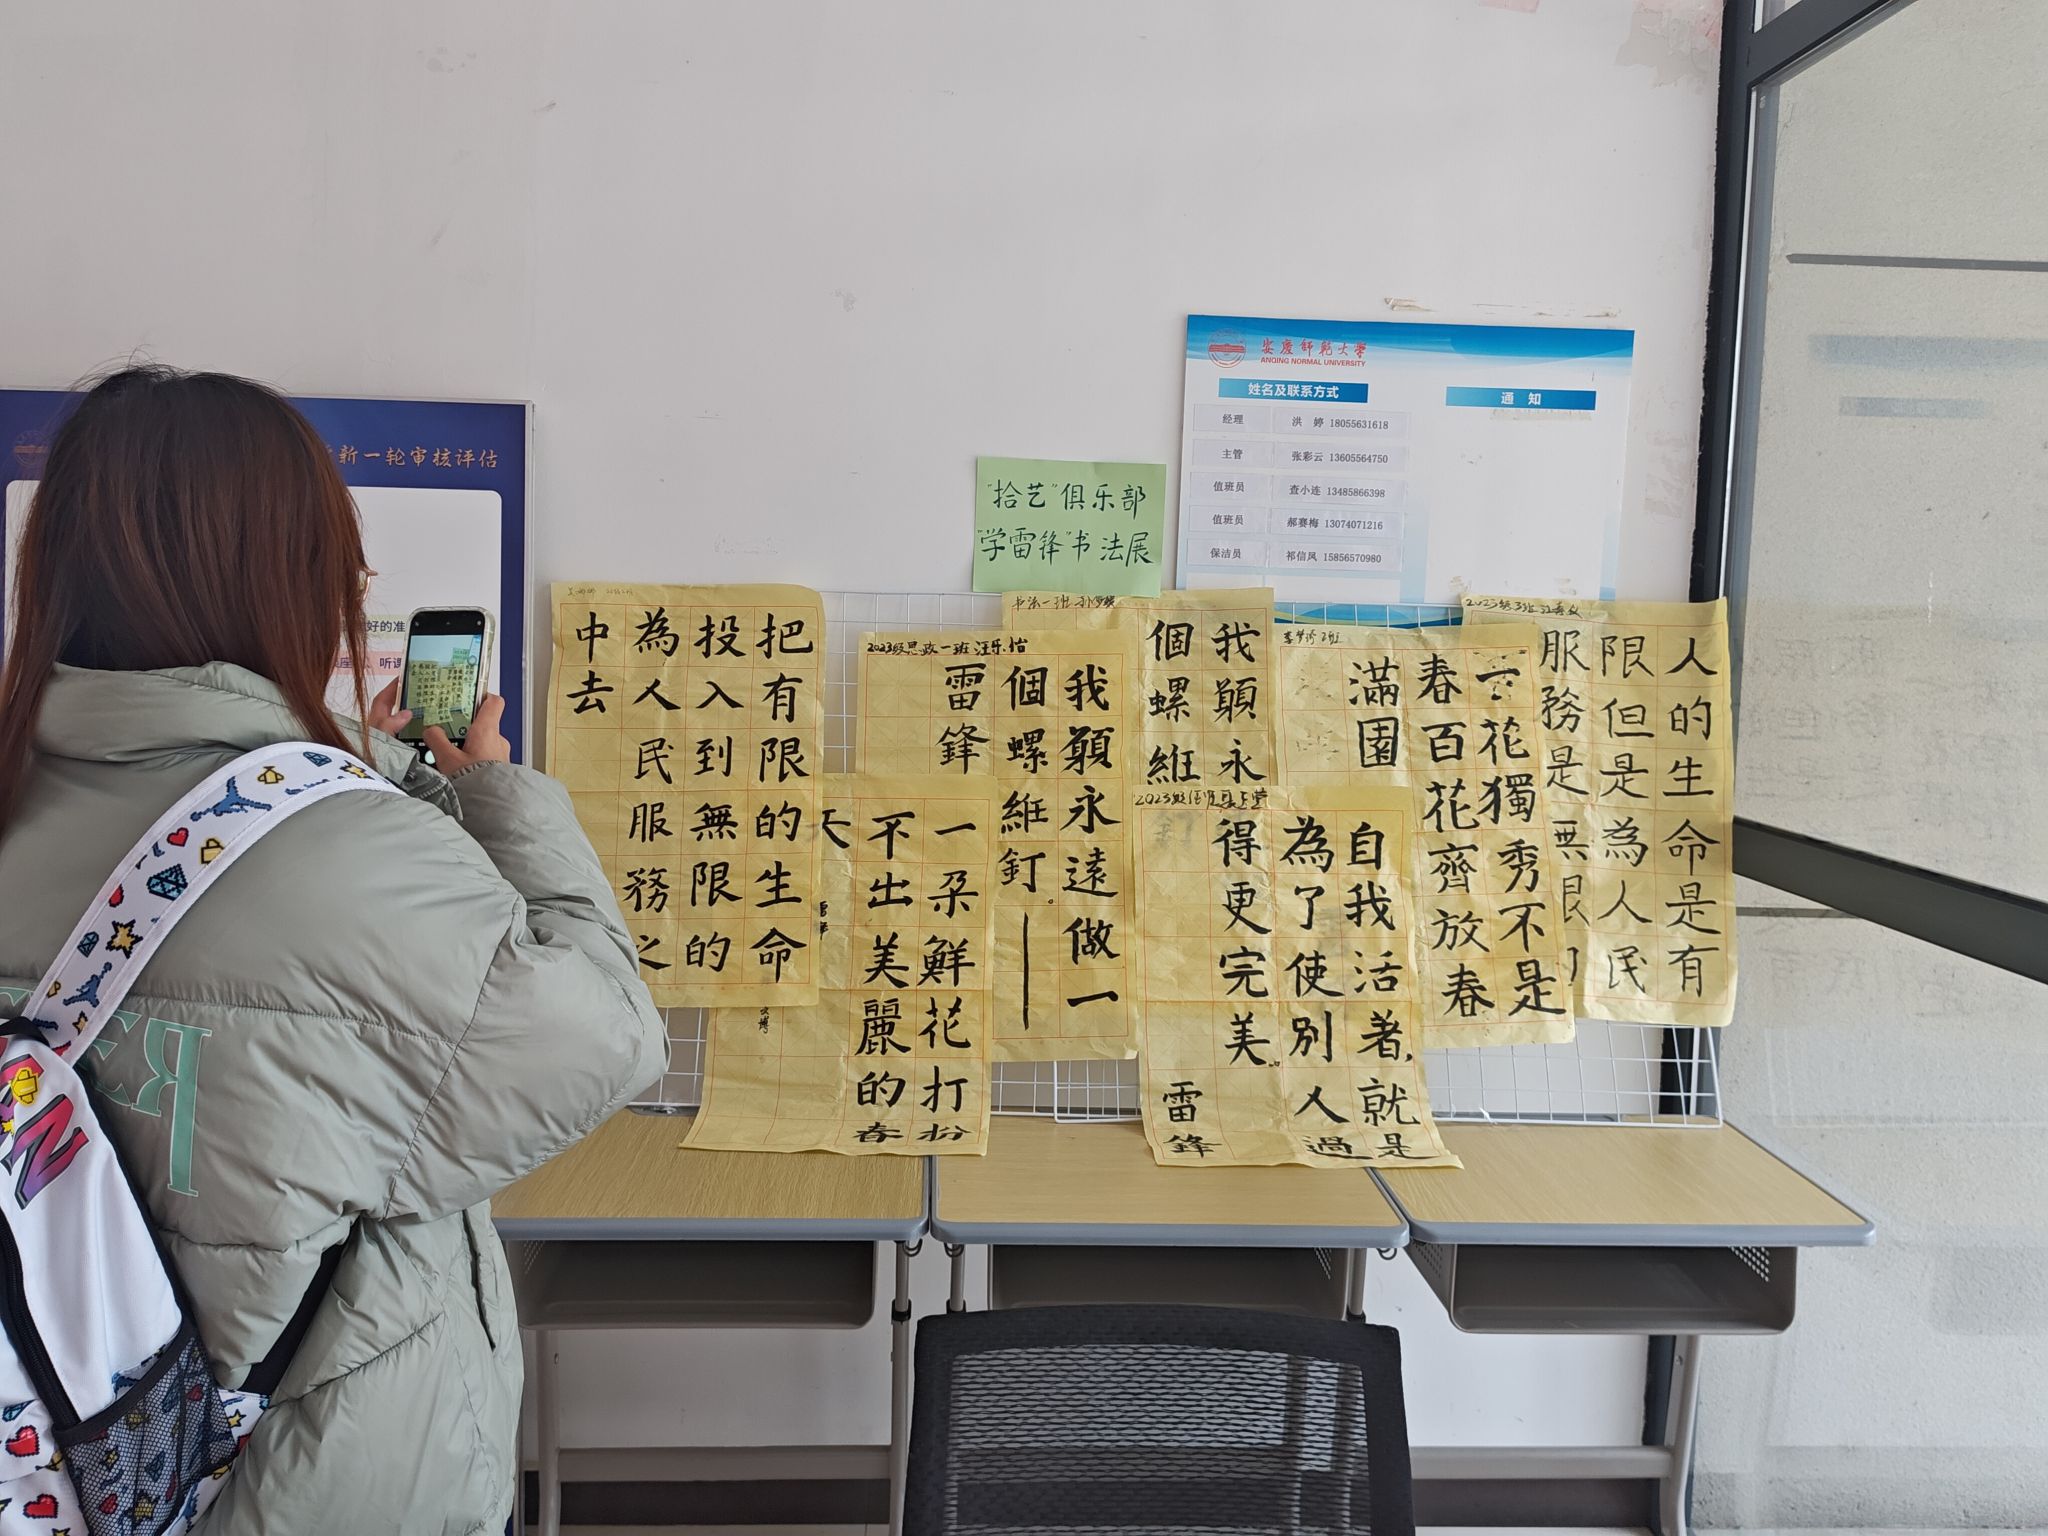 新一轮审核评估
好的准
听课
安慶師範大學
ANQING NORMAL UNIVERSITY
姓名及联系方式
通 知
经理 洪 婷 18055631618
主管 张彩云 13605564750
值班员 查小连 13485866398
值班员 郝赛梅 13074071216
保洁员 祁信凤 15856570980
"拾艺"俱乐部
"学雷锋"书法展
把有限的生命
投入到無限的
為人民服務之
中去
2023级思政一班汪乐怡
我願永遠做一
個螺維釘。——
雷鋒
一朵鮮花打扮
不出美麗的春
天
书法一班
我願永
個螺維釘
2023级
自我活著,就是
為了使別人過
得更完美。
雷鋒
一花獨秀不是
春百花齊放春
滿園
2023级
人的生命是有
限但是為人民
服務是無限